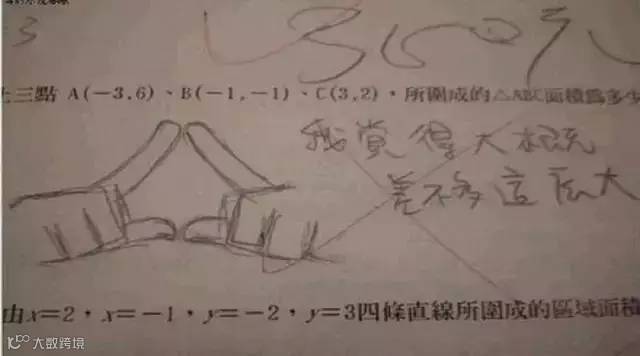 3
上三點 A(-3,6)、B(-1,-1)、C(3,2)，所圍成的△ABC面積為多少
我覺得大概
差不多這麼大
由x=2，x=-1，y=-2，y=3四條直線所圍成的區域面積
大數跨境